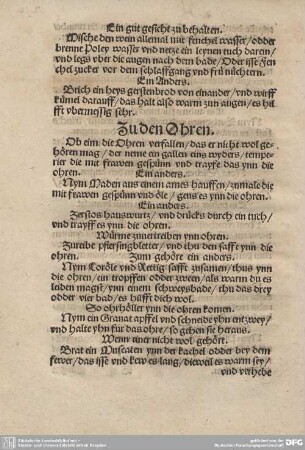 Ein gut gesicht zu behalten.
Wische den wein allemal mit fenchel wasser/ odder
brenne Poley wasser vnd netze ein leynen tuch daren/
vnd legs vber die augen nach dem bade/ Oder isse Fen
chel zucker vor dem schlaffgang vnd frü nüchtern.
Ein Anders.
Brich ein heys gerstenbrod von einander/ vnd wirff
kümel darauff/ das halt also warm zun augen/ es hi
lfft vbermessig sehr.
Zu den Ohren.
Ob eim die Ohren verfallen/ das er nicht wol ge-
hören mag/ der neme ein gallen eins wyders/ tempe-
rier die mit frawen gespünn vnd trayfe das ynn die
ohren.
Ein anders.
Nym Maden aus einem ames hauffen/ zumale die
mit frawen gespünn vnd öle/ geus es ynn die ohren.
Ein anders.
Zerstos hauswurtz/ vnd drücks durch ein tuch/
vnd trayff es ynn die ohren.
Würme zuuertreiben ynn ohren.
Zureibe pfersingbletter/ vnd thu den safft ynn die
ohren. Zum gehöre ein anders.
Nym Loröle vnd Rettig safft zusamen/ thus ynn
die ohren/ ein tropffen odder zwen/ als warm du es
leiden magst/ ynn einem schweysbade/ thu das drey
odder vier bad/ es hilfft dich wol.
So ohrhöller ynn die ohren komen.
Nym ein Granat apffel vnd schneide yhn entzwey/
vnd halte yhn für das ohre/ so gehen sie heraus.
Wenn einer nicht wol gehört.
Brat ein Muscaten ynn der kachel odder bey dem
fewer/ das isse vnd kew es lang/ dieweil es warm sey/
vnd verhebe